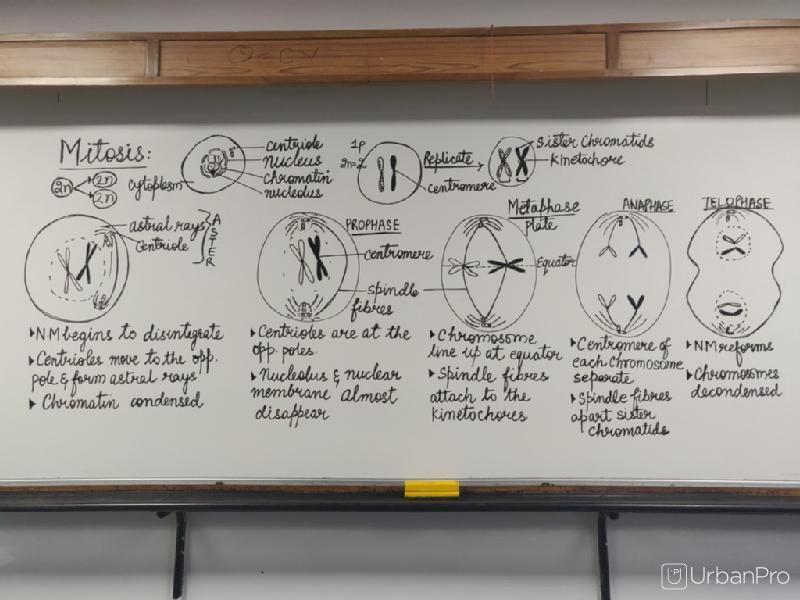 Mitosis:
2n
2n
2n
cytoplasm
centriole
nucleus
chromatin
nucleolus
2n=2
centromere
Replicate
Sister Chromatids
Kinetochore
astral rays
Centriole
ASTER
PROPHASE
centromere
spindle
fibres
Metaphase
plate
Equator
ANAPHASE
TELOPHASE
▸NM begins to disintegrate
▸Centrioles move to the opp.
pole & form astral rays
▸ Chromatin condensed
▸ Centrioles are at the
opp. poles.
▸ Nucleolus & nuclear
membrane almost
disappear
▸ Chromosome
line up at equator
▸ Spindle fibres
attach to the
kinetochores
▸Centromere of
each chromosome
separate
▸Spindle fibres
apart sister
chromatids
▸NM reforms
▸Chromosomes
decondensed
UrbanPro